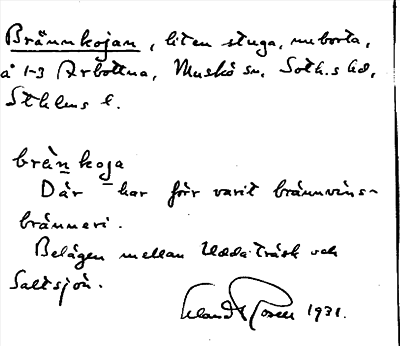 Brännkojan, liten stuga, nu borta,
å 1-3 Arbottna, Muskö sn, Soth.s hd,
Sthlms l.
brä̀nkoja
Där har förr varit brännvins-
bränneri.
Belägen mellan Uddaträsk och
Saltsjön.
Erland Rosell 1931.